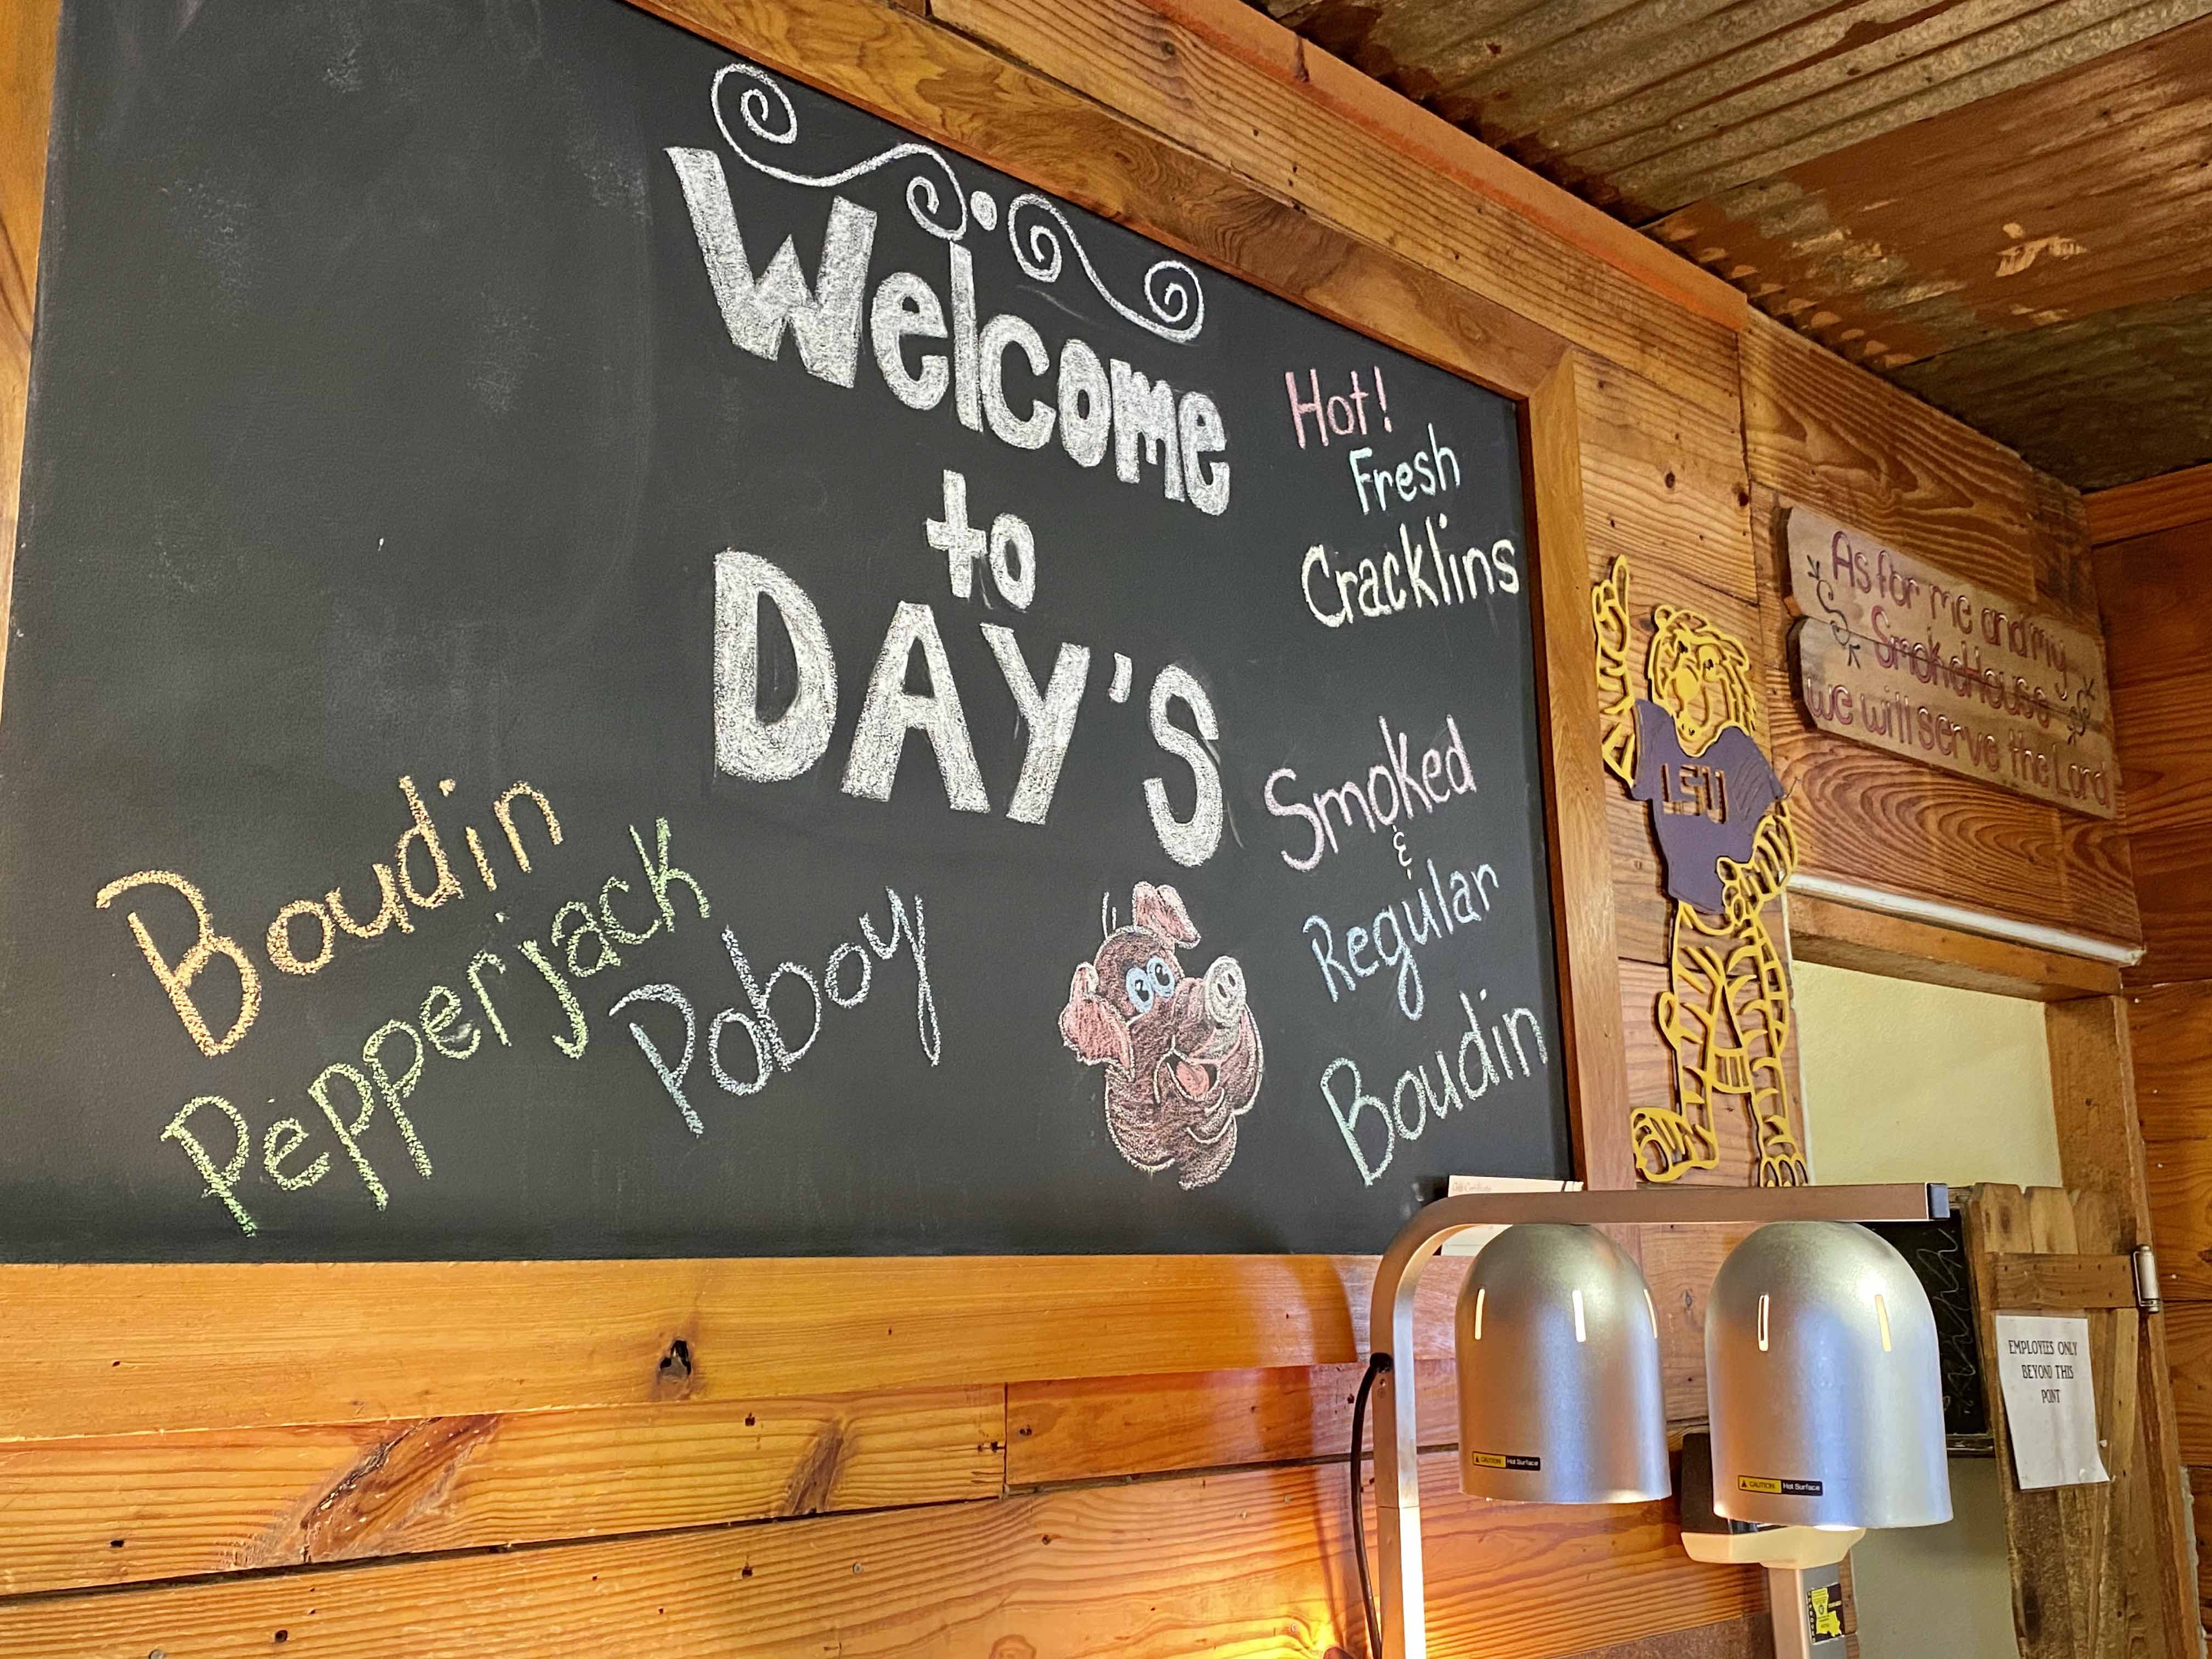 Welcome
to
DAY'S
Hot!
Fresh
Cracklins
Smoked
&
Regular
Boudin
Boudin
Pepperjack
Poboy
As for me and my
SmokeHouse
we will serve the Lord
LSU
EMPLOYEES ONLY
BEYOND THIS
POINT
CAUTION Hot Surface
CAUTION Hot Surface